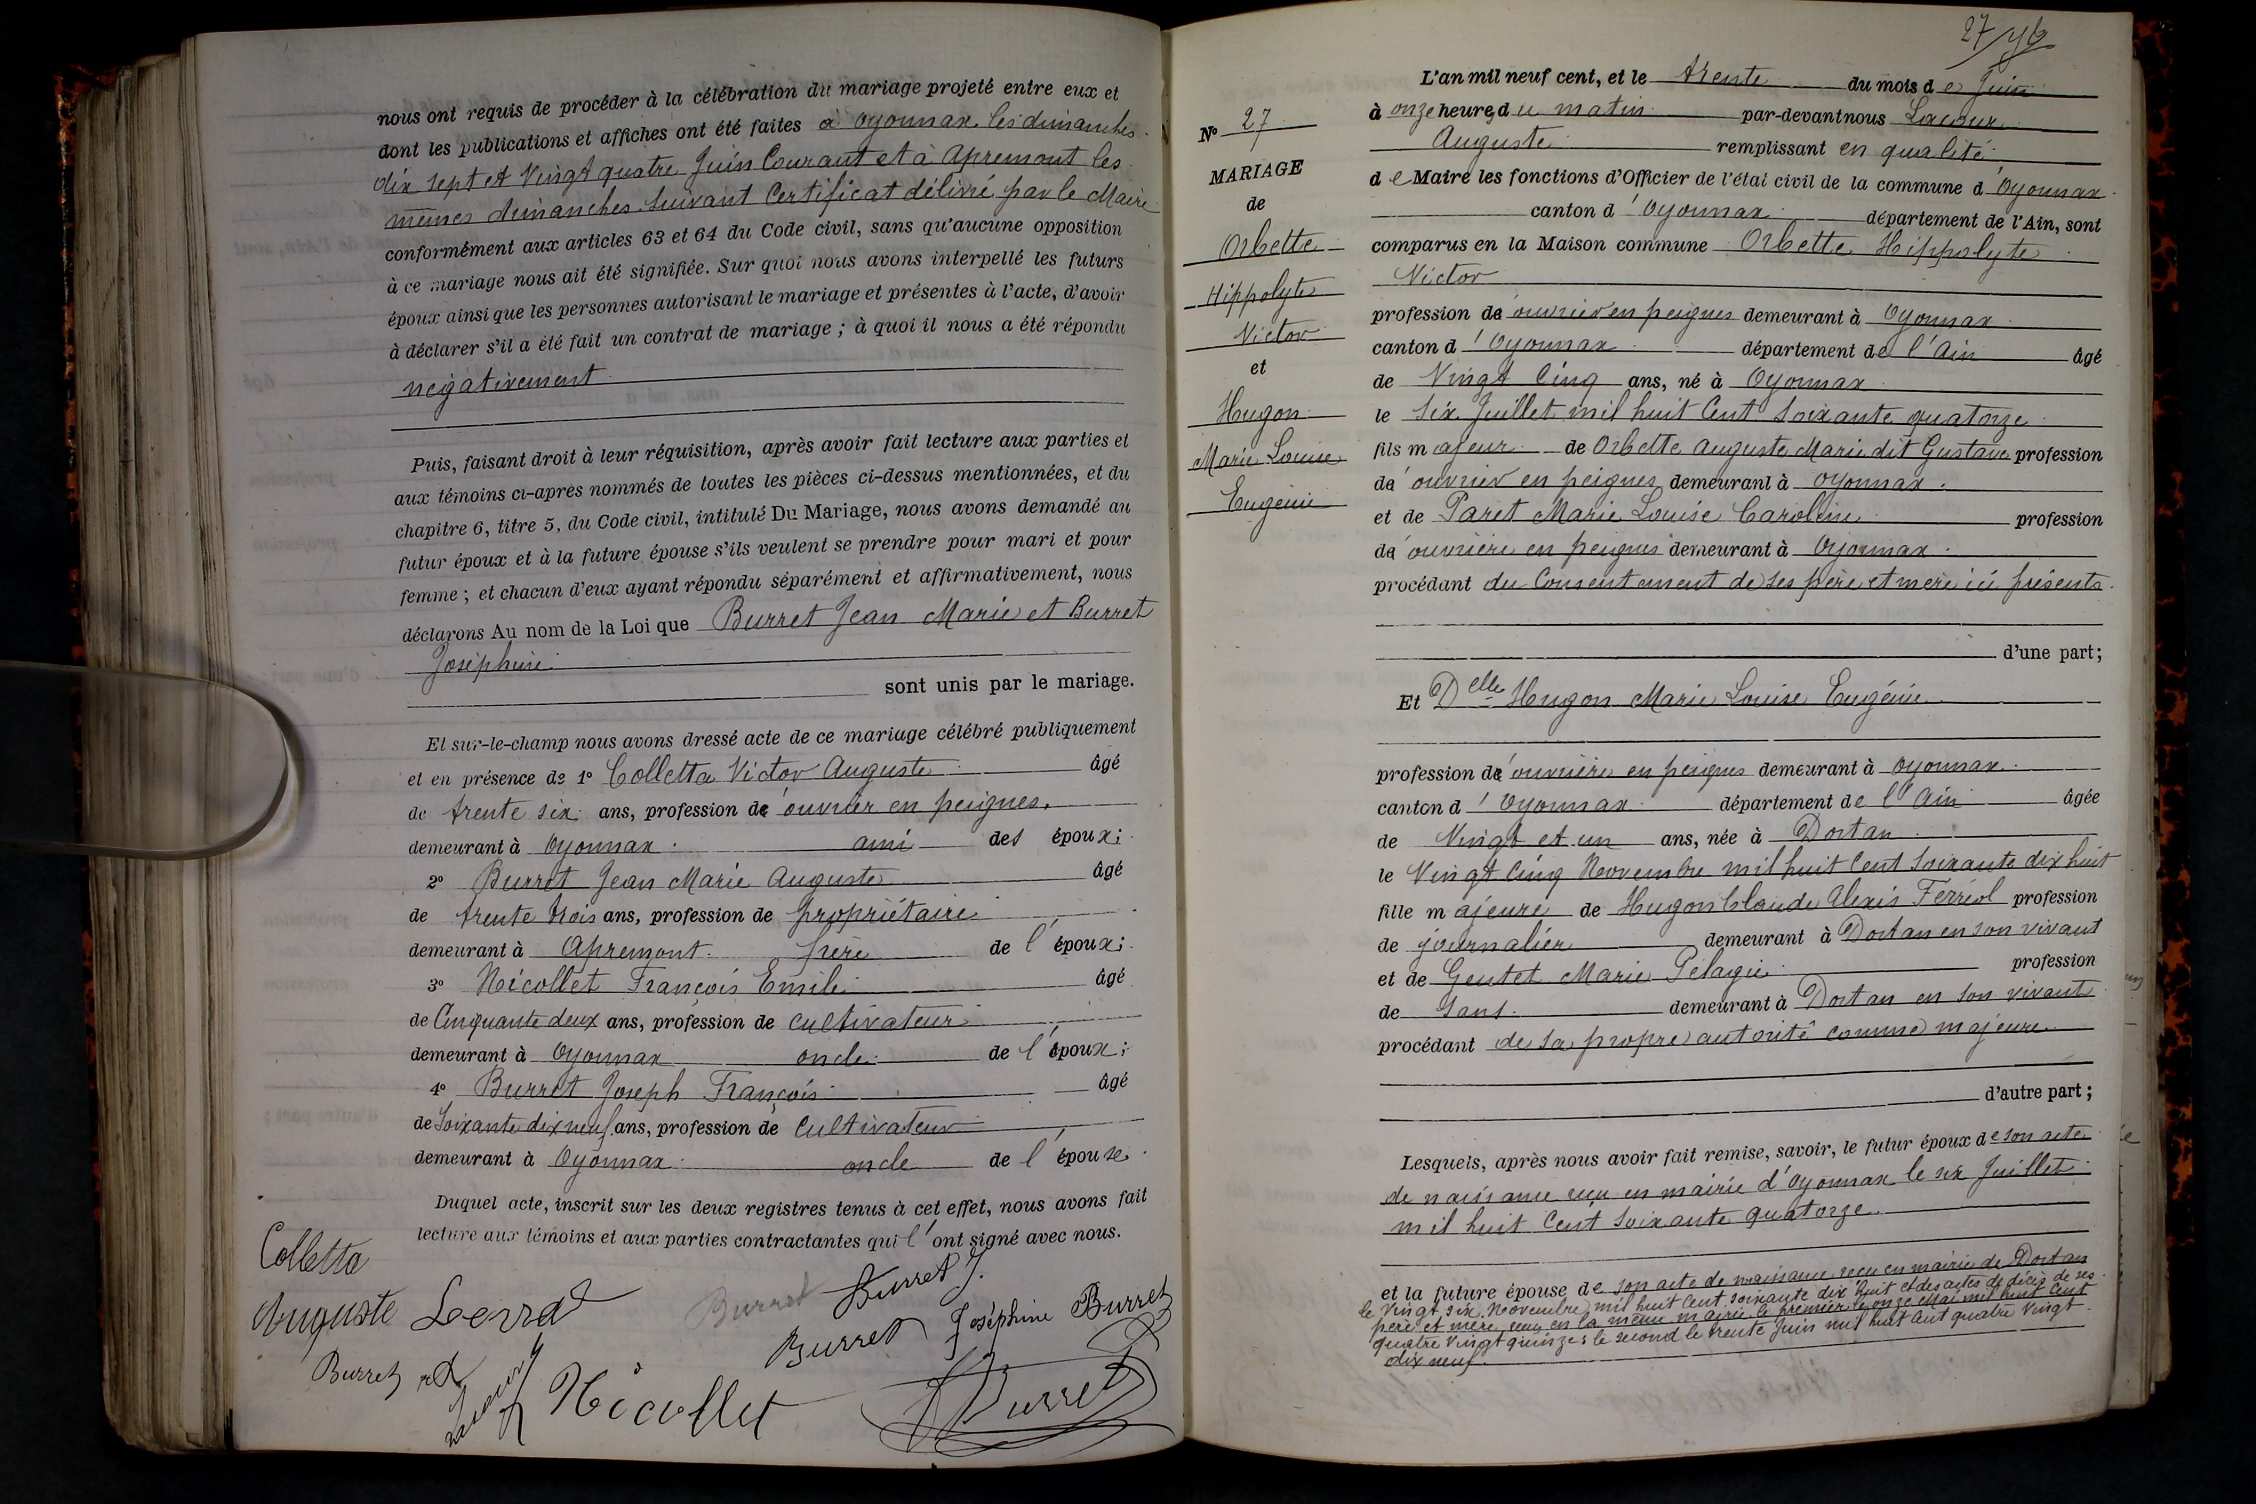 nous ont requis de procéder à la célébration du mariage projeté entre eux et
dont les publications et affiches ont été faites à Oyonnax les dimanches
dix sept et Vingt quatre Juin Courant et à Apremont les
mêmes dimanches suivant Certificat délivré par le Maire
conformément aux articles 63 et 64 du Code civil, sans qu'aucune opposition
à ce mariage nous ait été signifiée. Sur quoi nous avons interpellé les futurs
époux ainsi que les personnes autorisant le mariage et présentes à l'acte, d'avoir
à déclarer s'il a été fait un contrat de mariage ; à quoi il nous a été répondu
négativement
Puis, faisant droit à leur réquisition, après avoir fait lecture aux parties et
aux témoins ci-après nommés de toutes les pièces ci-dessus mentionnées, et du
chapitre 6, titre 5, du Code civil, intitulé Du Mariage, nous avons demandé au
futur époux et à la future épouse s'ils veulent se prendre pour mari et pour
femme ; et chacun d'eux ayant répondu séparément et affirmativement, nous
déclarons Au nom de la Loi que Burret Jean Marie et Burret
Joséphine
sont unis par le mariage.
Et sur-le-champ nous avons dressé acte de ce mariage célébré publiquement
et en présence de 1° Colletta Victor Auguste âgé
de trente six ans, profession d'ouvrier en peignes.
demeurant à Oyonnax ami des époux ;
2° Burret Jean Marie Auguste âgé
de trente trois ans, profession de propriétaire
demeurant à Apremont frère de l'époux ;
3° Nicollet François Emile âgé
de Cinquante deux ans, profession de cultivateur
demeurant à Oyonnax oncle de l'époux ;
4° Burret Joseph François âgé
de Soixante dix neuf ans, profession de cultivateur
demeurant à Oyonnax oncle de l'épouse
Duquel acte, inscrit sur les deux registres tenus à cet effet, nous avons fait
lecture aux témoins et aux parties contractantes qui l'ont signé avec nous.
Colletta
Auguste
Burret J.
Burret
Joséphine Burret
Burret
Burret
Nicollet
Burret
27
L'an mil neuf cent, et le trente du mois de Juin
à onze heures du matin par-devant nous Lacroux
Auguste remplissant en qualité
de Maire les fonctions d'Officier de l'état civil de la commune d'Oyonnax
canton d'Oyonnax département de l'Ain, sont
comparus en la Maison commune Orbette Hippolyte
Victor
N° 27
MARIAGE
de
Orbette
Hippolyte
Victor
et
Hugon
Marie Louise
Eugénie
profession d'ouvrier en peignes demeurant à Oyonnax
canton d'Oyonnax département de l'Ain âgé
de Vingt Cinq ans, né à Oyonnax
le Six Juillet mil huit Cent soixante quatorze
fils majeur de Orbette Auguste Marie dit Gustave profession
d'ouvrier en peignes demeurant à Oyonnax.
et de Paret Marie Louise Caroline profession
d'ouvrière en peignes demeurant à Oyonnax.
procédant du Consentement de ses père et mère ici présents
d'une part ;
Et Delle Hugon Marie Louise Eugénie
profession d'ouvrière en peignes demeurant à Oyonnax
canton d'Oyonnax département de l'Ain âgée
de Vingt et un ans, née à Dortan
le Vingt Cinq Novembre mil huit Cent Soixante dix huit
fille majeure de Hugon Claude Alexis Ferréol profession
de journalier demeurant à Dortan en son vivant
et de Gentet Marie Pélagie profession
de Sans demeurant à Dortan en son vivant
procédant de sa propre autorité comme majeure
d'autre part ;
Lesquels, après nous avoir fait remise, savoir, le futur époux de son acte
de naissance reçu en mairie d'Oyonnax le six Juillet
mil huit Cent Soixante quatorze
et la future épouse de son acte de naissance reçu en mairie de Dortan
le Vingt six Novembre mil huit Cent soixante dix huit et des actes de décès de ses
père et mère reçus en la même mairie le premier le onze Mai mil huit Cent
quatre Vingt quinze ; le second le trente Juin mil huit Cent quatre Vingt
dix neuf